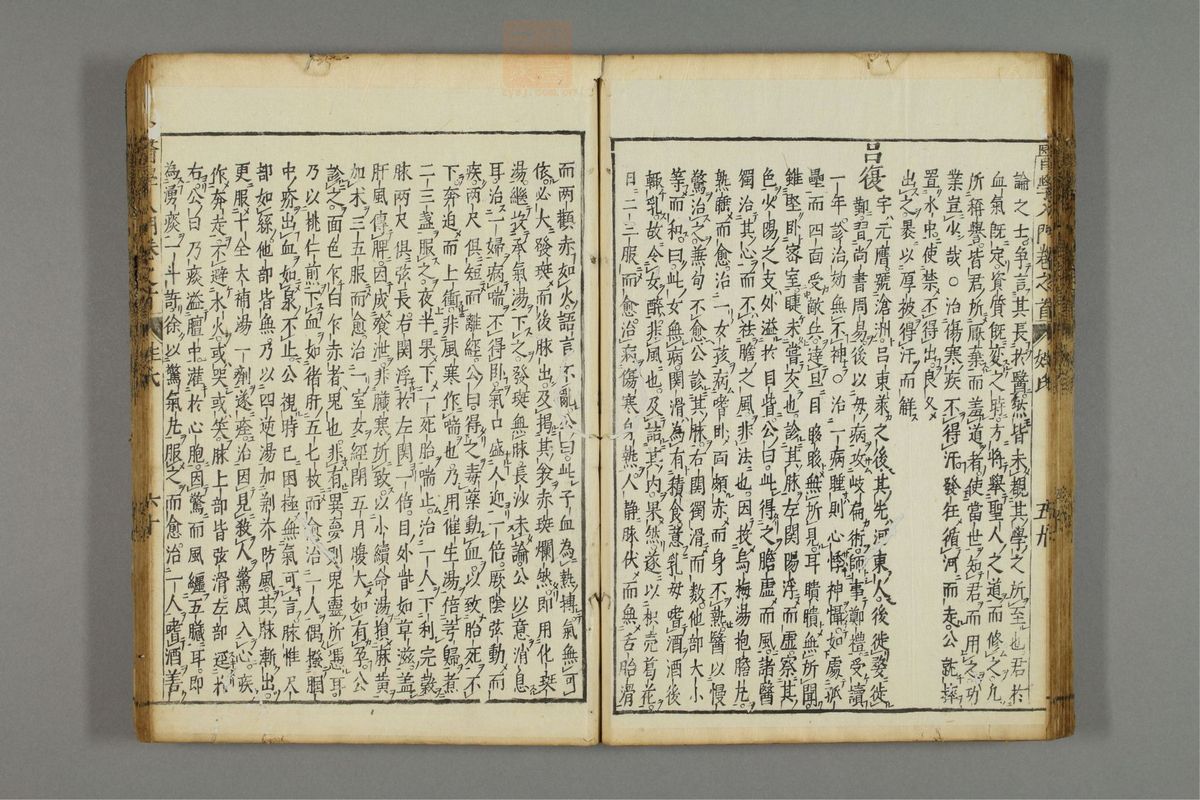 論之士爭言其長於醫然皆未覩其學之所至也君於
血氣既定資質既變之時方將舉聖人之道而修之凡
所稱譽皆君所厭棄而羞道者使當世知君而用之功
業豈少哉○治傷寒疾不得汗發狂循河而走公就摔
置水中使禁不得出良久
出之裹以厚被得汗而觧
呂復
字元膺號滄洲呂東萊之後其先河東人後徙婺徙
鄞習尚書周易後以母病攻岐扁術師事鄭禮受讀
一年診治効無不神○治一病睡則心悸神懾如處孤
壘而四面受敵兵達旦目䀮䀮無所見耳聵聵無所聞
雖堅卧密室睫未嘗交也診其脉左関陽浮而虛察其
色少陽之支外溢於目眥公曰此得之膽虛而風諸醫
獨治其心而不祛膽之風非法也因投烏梅湯抱膽丸
熟睡而愈治一女孩病嗜卧面頰赤而身不熱醫以慢
驚治之兼旬不愈公診其脉右関獨滑而数他部大小
等而和曰此女無病関滑為有積食意乳母嗜酒酒後
輙乳故令女醉非風也及詰其内果然遂以枳壳葛花
日二三服而愈治病傷寒身熱人静脉伏而無舌胎滑
而兩顴赤如火語言不亂公曰此子血為熱搏氣無可
依必大發斑而後脉出及揭其衾赤斑爛然即用化斑
湯繼投承氣湯下之發斑無脉長沙未論公以意消息
耳治一婦病喘不得卧氣口盛人迎一倍厥陰弦動而
疾兩尺俱短而離經公曰得之毒藥動血以致胎死不
下奔迫而上衝非風寒作喘也乃用催生湯倍芎歸煮
二三盞服之夜半果下一死胎喘止治一人下利完穀
脉兩尺俱弦長右関浮於左関一倍目外眥如草滋蓋
肝風傳脾因成飱泄非臟寒所致以小續命湯損麻黃
加术三五服而愈治一室女經閉五月腹大如有孕公
診之面色乍白乍赤者鬼也非有異夢則鬼靈所憑耳
乃以挑仁煎下血如猪肝五七枚而愈治一人偶搔䐃
中疥出血如泉不止公視時已困極無氣可言脉惟尺
部如絲他部皆無乃以四逆湯加荊芥防風其脉漸出
更服十全大補湯一劑遂痊治因見殺人驚風入心疾
作奔走不避水火或哭或笑脉上部皆弦滑左部逕於
右公曰乃痰溢膻中灌於心胞因驚而風纏五臟耳即
為湧痰一斗許徐以驚氣丸服之而愈治一人嗜酒善